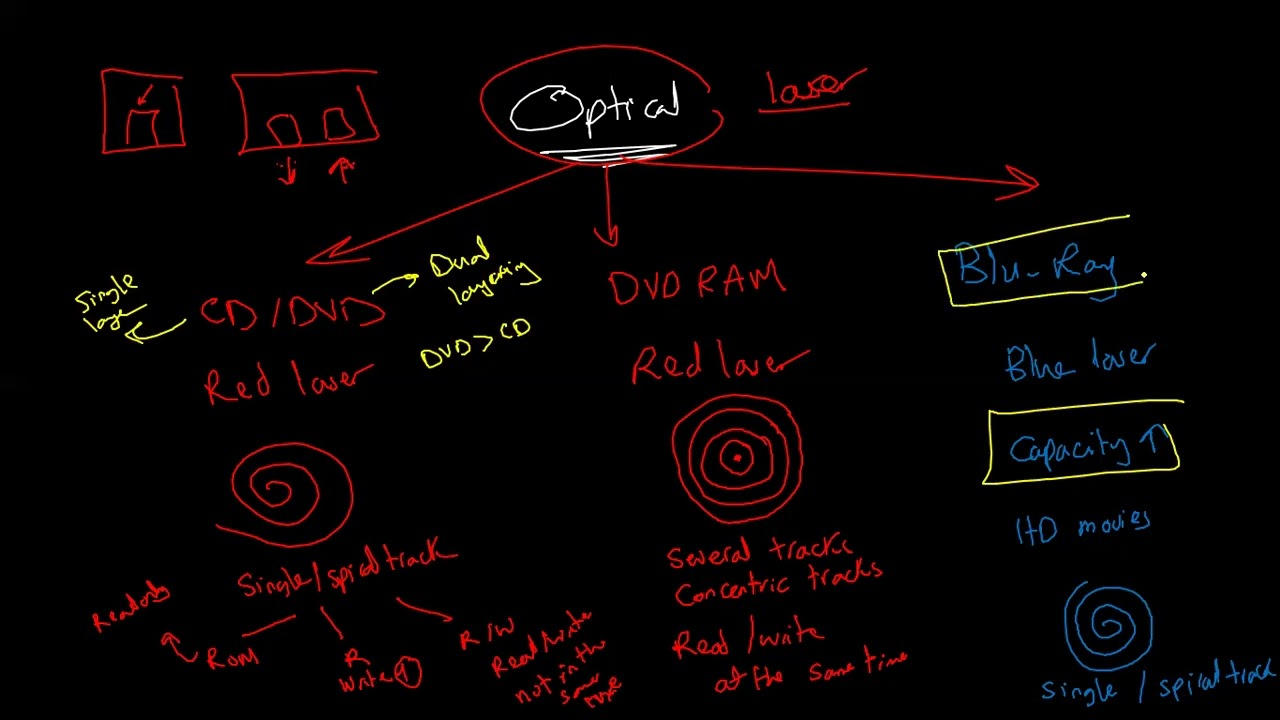 Optical
laser
Single
layer
CD/DVD
Dual
layering
DVD > CD
Red laser
Single/spiral track
Readonly
ROM
R
write 1
R/W
Read/write
not in the
same
time
DVD RAM
Red laser
Several tracks
Concentric tracks
Read/write
at the same time
Blu-Ray
Blue laser
Capacity ↑
HD movies
single / spiral track